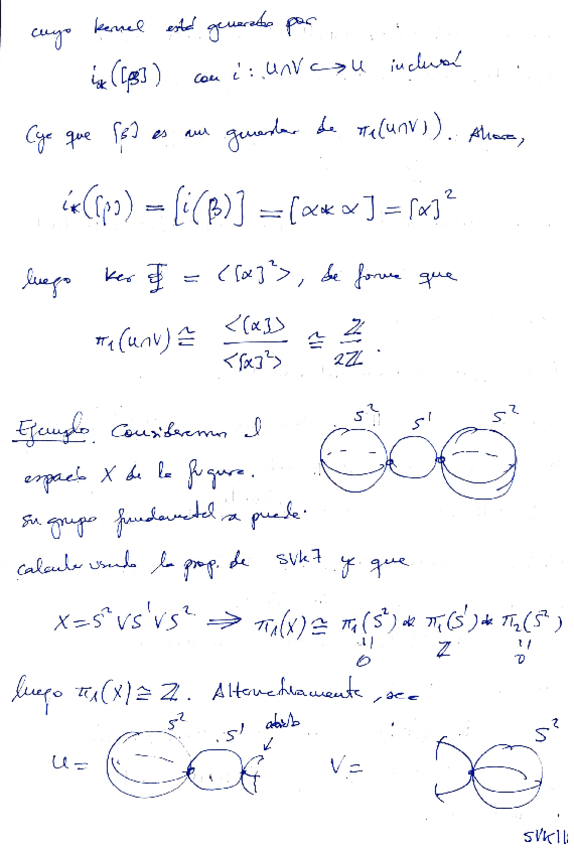 cuyo kernel está generado por
i_*([β]) con i : U∩V ↪ U inclusión
(ya que [β] es un generador de π₁(U∩V)). Ahora,
i_*([β]) = [i(β)] = [α * α] = [α]²
luego ker Φ = <[α]²>, de forma que
π₁(U∩V) ≅ <[α]> / <[α]²> ≅ ℤ / 2ℤ.
Ejemplo. Consideremos el
espacio X de la figura.
Su grupo fundamental se puede
calcular usando la prop. de SVK7 ya que
S² S¹ S²
X = S² ∨ S¹ ∨ S² ⟹ π₁(X) ≅ π₁(S²) * π₁(S¹) * π₂(S²)
0 ℤ 0
luego π₁(X) ≅ ℤ. Alternativamente, sea
S² S¹ abierto
U =
V = S²
SVK11